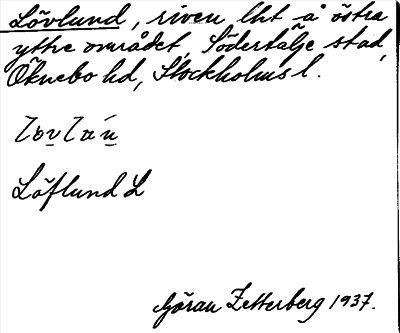 Lövlund, riven lht å östra
yttre området, Södertälje stad,
Öknebo hd, Stockholms l.
Löflund L
Göran Zetterberg 1937.